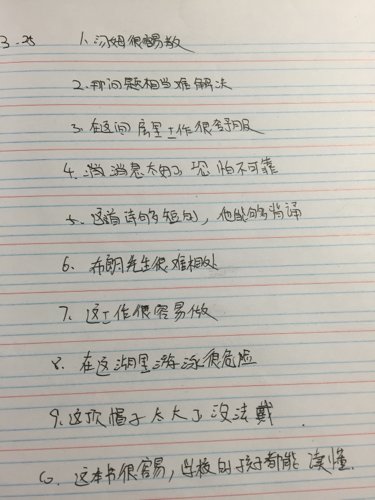 3.25 1. 汤姆很容易教
2. 那问题相当难解决
3. 在这间房里工作很舒服
4. 消息太 了恐怕不可靠
5. 这首诗够短的，他能够背诵
6. 布朗先生很难相处
7. 这工作很容易做
8. 在这湖里游泳很危险
9. 这顶帽子太大了没法戴
10. 这本书很容易，学校的孩子都能读懂.